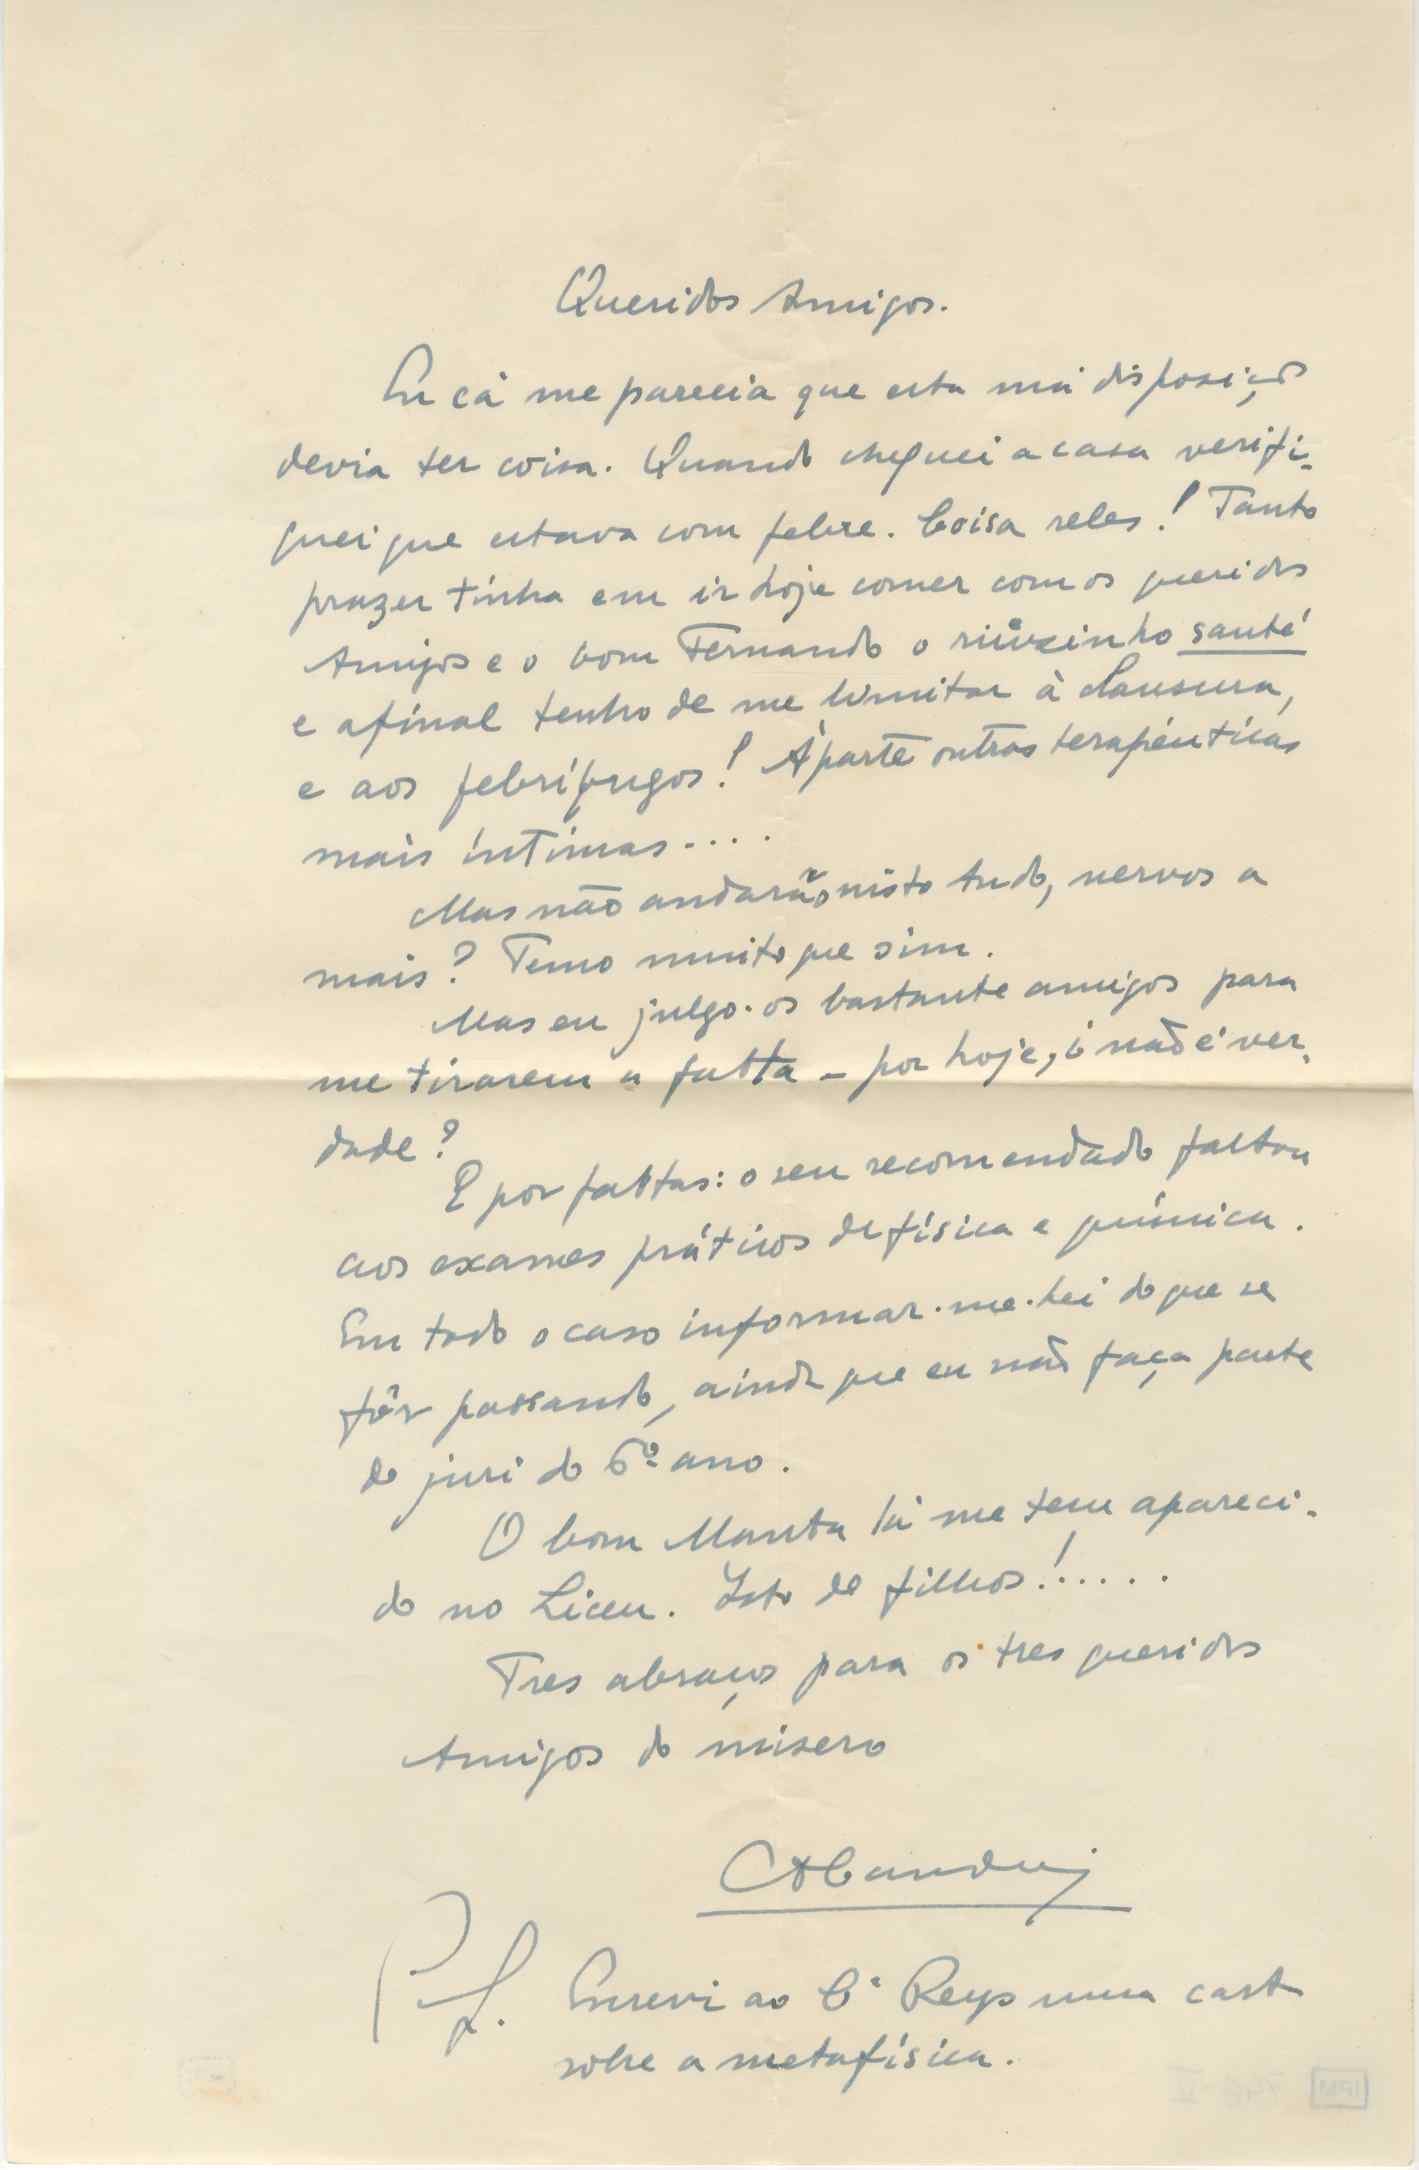 Queridos Amigos.
Eu cá me parecia que esta má disposição
devia ter coisa. Quando cheguei a casa verifi-
quei que estava com febre. Coisa reles! Tanto
prazer tinha em ir hoje comer com os queridos
Amigos e o bom Fernando o rinzinho santé
e afinal tenho de me limitar à clausura,
e aos febrífugos! Àparte outras terapêuticas
mais íntimas....
Mas não andarão nisto tudo, nervos a
mais? Temo muito que sim.
Mas eu julgo-os bastante amigos para
me tirarem a falta - por hoje, não é ver-
dade?
E por faltas: o seu recomendado faltou
aos exames práticos de física e química.
Em todo o caso informar-me-hei do que se
fôr passando, ainda que eu não faça parte
do juri do 6º ano.
O bom Manta lá me tem apareci-
do no Liceu. Isto de filhos!......
Tres abraços para os tres queridos
Amigos do misero
P.S. Escrevi ao Cª Reys uma carta
sobre a metafísica.
IPM